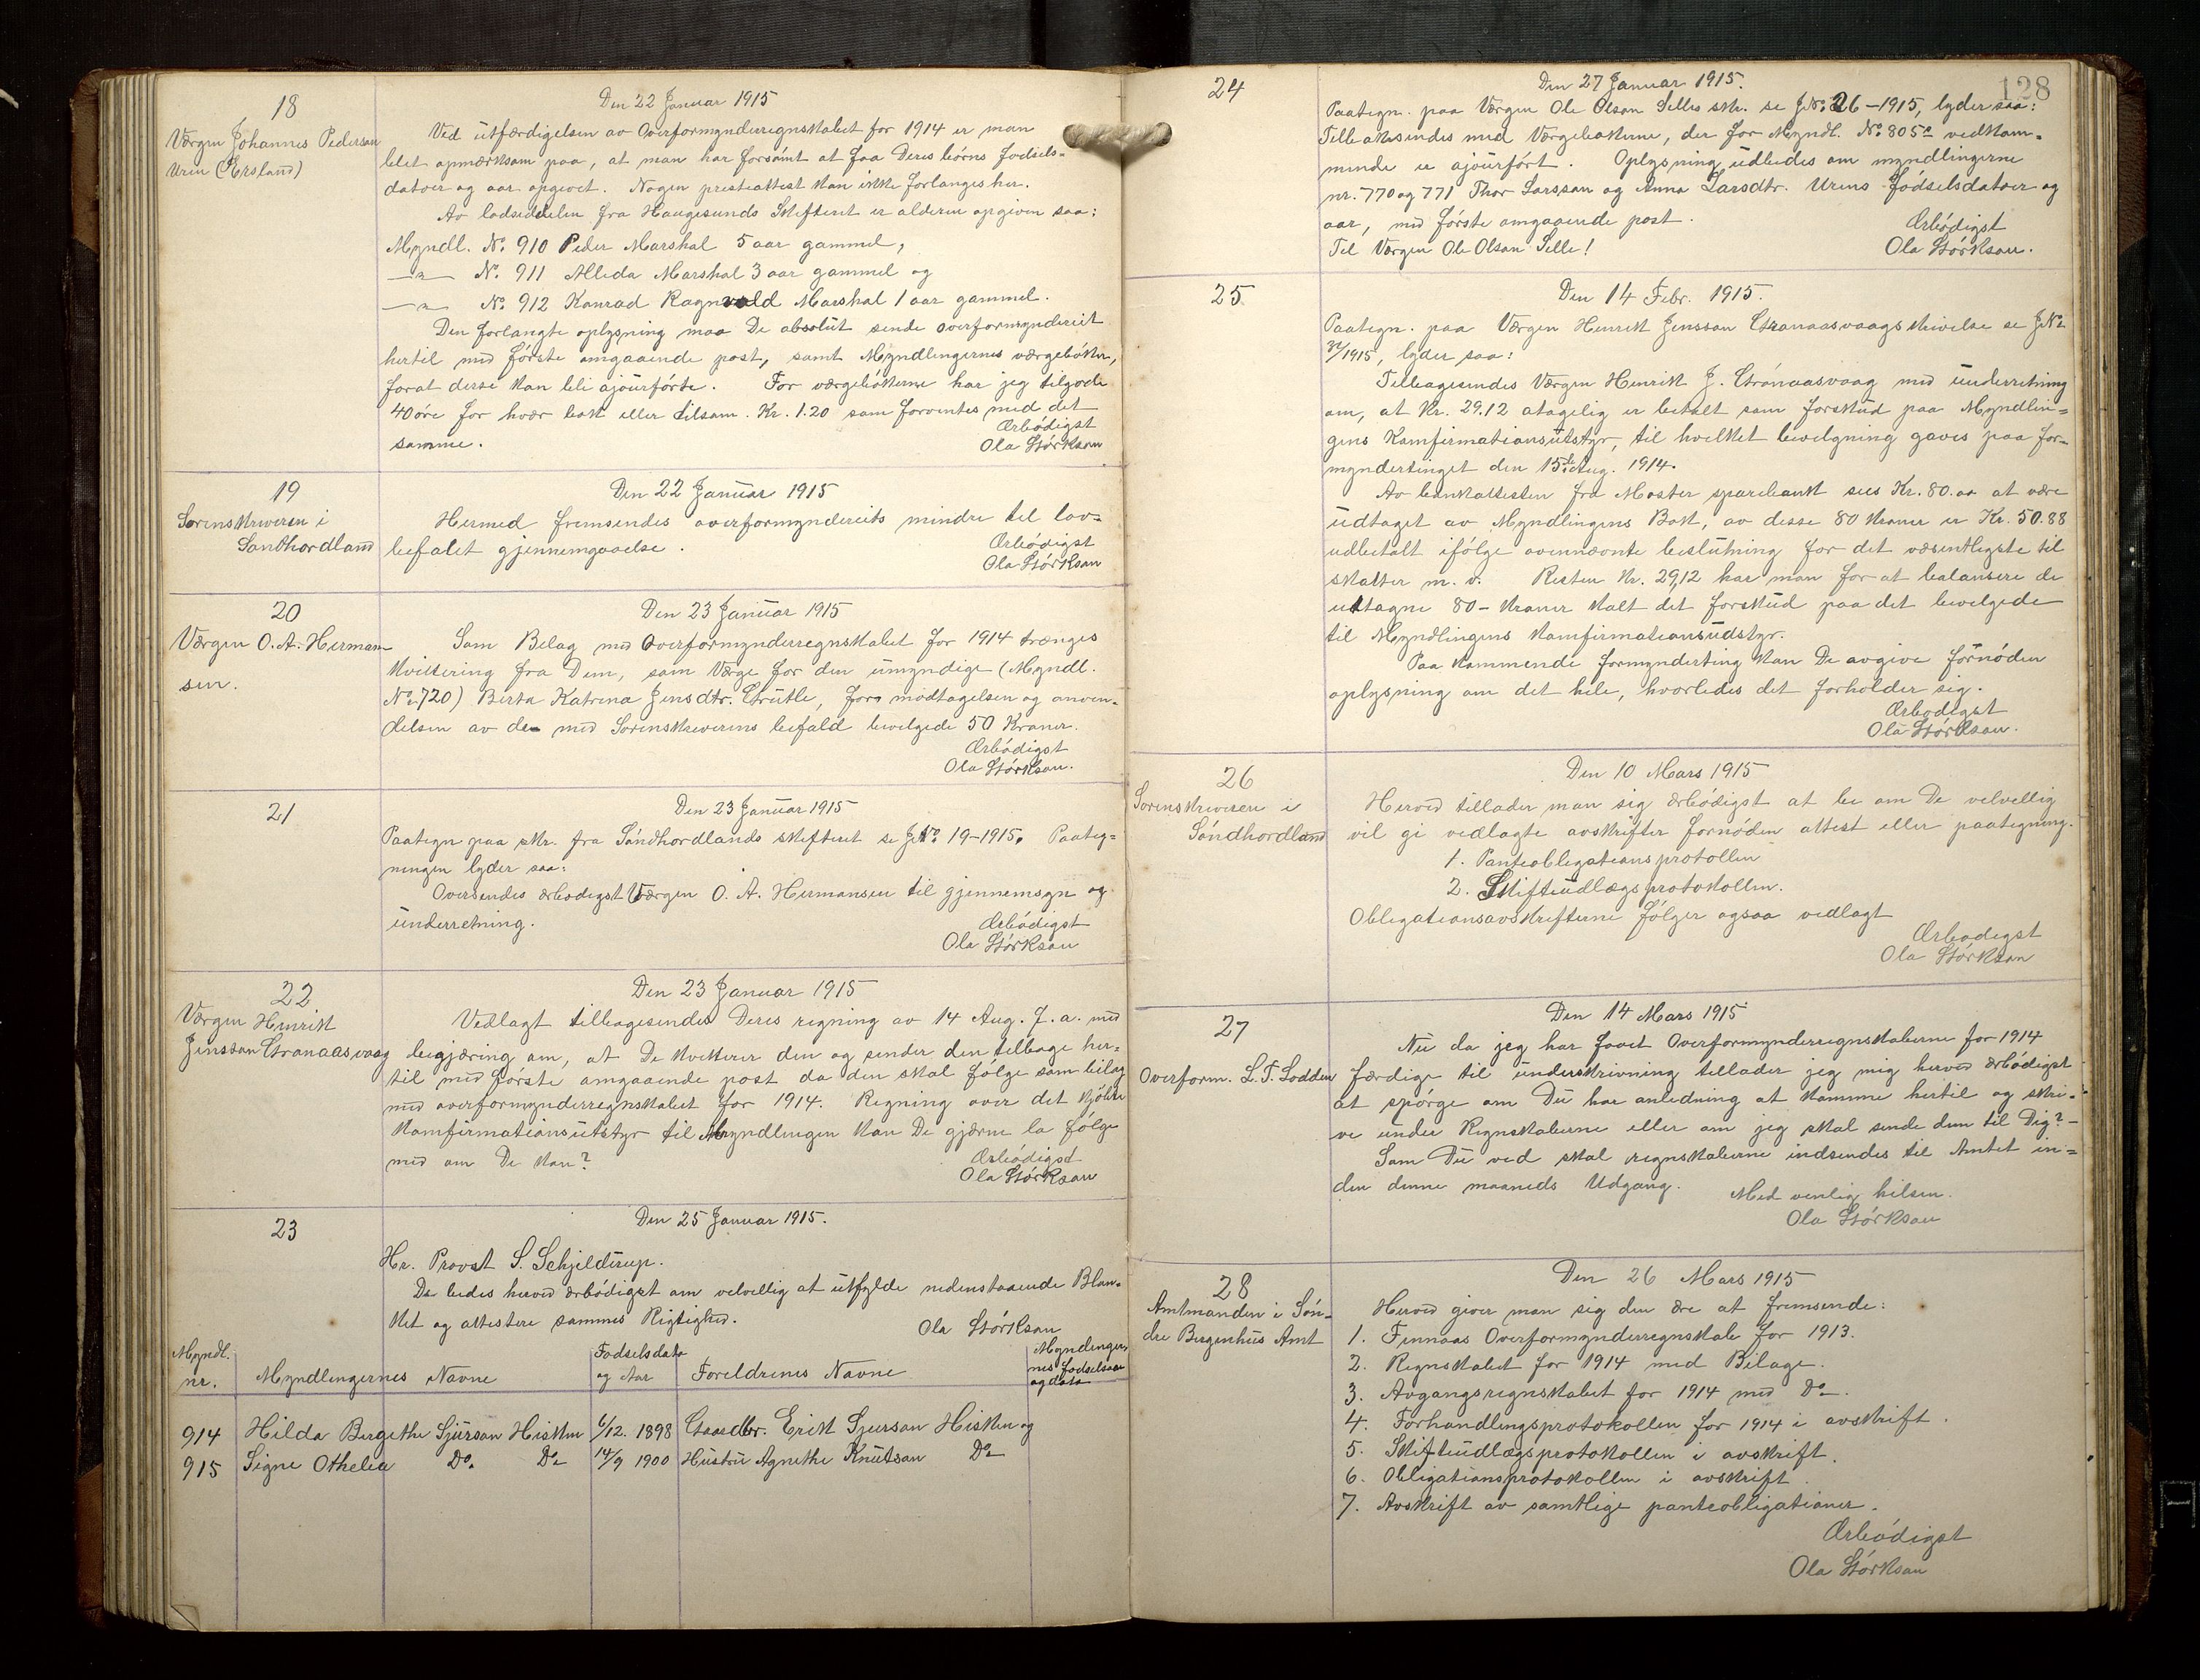 18
Værgen Johannes Pederson
Uren (Ersland)
Den 22 Januar 1915
Ved utfærdigelsen av Overformynderregnskabet for 1914 er man
blet opmærksom paa, at man har forsømt at faa Deres børns fødsels-
datoer og aar opgivet. Nogen presteattest kan ikke forlanges her.
Av lodseddelen fra Haugesunds Skifteret er alderen opgiven saa:
Myndl. No. 910 Peder Marshal 5 aar gammel,
—"— No. 911 Alleda Marshal 3 aar gammel og
—"— No. 912 Konrad Ragnvald Marshal 1 aar gammel.
Den forlangte oplysning maa De absolut sende overformynderiet
hertil med første omgaaende post, samt Myndlingernes værgebøker,
forat desse kan bli ajourførte. For værgebøkerne har jeg tilgode
40 øre for hver bok eller tilsam. Kr. 1.20 som forventes med det
samme.
Ærbødigst
Ola Størkson
19
Sorenskriveren i
Søndhordland
Den 22 Januar 1915
Hermed fremsendes overformynderiets mindre til lov-
befalet gjennemgaaelse.
Ærbødigst
Ola Størkson
20
Værgen O. A. Herman
sen.
Den 23 Januar 1915
Som Bilag med Overformynderregnskabet for 1914 trænges
kvittering fra Dem, som Værge for den umyndige (Myndl.
No. 720) Berta Katrina Jensdtr. Grutle, for modtagelsen og anven-
delsen av de med Sorenskriverens befald bevelgede 50 Kroner.
Ærbødigst
Ola Størkson.
21
Den 23 Januar 1915
Paategn paa skr. fra Søndhordlands skifteret se J.No. 19-1915. Paateg-
ningen lyder saa:
Oversendes ærbødigst Værgen O. A. Hermansen til gjennemsyn og
underretning.
Ærbødigst
Ola Størkson
22
Værgen Henrik
Jensson Gronaasvaag
Den 23 Januar 1915
Vedlagt tilbagesendes Deres regning av 14 Aug. f. a. med
begjæring om, at De kvitterer den og sender den tilbage her-
til med første omgaaende post da den skal følge som bilag
med overformynderregnskabet for 1914. Regning over det kjøbte
Komfirmationsutstyr til Myndlingen kan De gjærne la følge
med om De kan?
Ærbødigst
Ola Størkson
23
Den 25 Januar 1915.
Hr. Provst S. Schjelderup.
De bedes herved ærbødigst om velvellig at utfylde nedenstaaende Blan-
ket og attestere sammes Rigtighed.
Ola Størkson
Myndl. nr. Myndlingernes Navne Fødselsdato og Aar Foreldrenes Navne Myndlinger-nes fødselsaar og dato
914 Hilda Bergethe Sjurson Hisken 6/12. 1898 Gaardbr. Erik Sjurson Hisken og
915 Signe Othelia Do. Do 14/9 1900 Hustru Agnethe Knutson Do
128
24
Den 27 Januar 1915.
Paategn. paa Værgen Ole Olson Selles skr. se J.No. 26-1915, lyder saa:
Tilbakesendes med Værgebøkerne, der for Myndl. No. 805 vedkom-
mende er ajourført. Oplysning udbedes om myndlingerne
nr. 770 og 771 Thor Larsson og Anna Larsdtr. Urens Fødselsdatoer og
aar, med første omgaaende post.
Til Værgen Ole Olson Selle!
Ærbødigst
Ola Størkson.
25
Den 14 Febr. 1915.
Paategn. paa Værgen Henrik Jensson Gronaasvaags skrivelse se J.No
/1915, lyder saa:
Tilbagesendes Værgen Henrik J. Gronaasvaag med underretning
om, at Kr. 29.12 atagelig er betalt som forskud paa Myndlin-
gens Komfirmationsutstyr, til hvilket bevelgning gaves paa for-
myndertinget den 15de Aug. 1914.
Av bankattesten fra Moster sparebank sees Kr. 80.00 at være
udtaget av Myndlingens Bok, av desse 80 kroner er Kr. 50.88
udbetalt ifølge ovennævnte beslutning for det væsentligste til
skatter m. v. Resten Kr. 29,12 har man for at balansere de
udtagne 80- kroner kalt det forskud paa det bevelgede
til Myndlingens komfirmationsudstyr.
Paa kommende formynderting kan De avgive fornøden
oplysning om det hele, hvorledes det forholder sig.
Ærbødigst
Ola Størkson.
26
Sorenskriveren i
Søndhordland
Den 10 Mars 1915
Herved tillader man sig ærbødigst at be om De velvellig
vil gi vedlagte avskrifter fornøden attest eller paategning.
1. Panteobligationsprotollen
2. Skifteudlægsprotokollen.
Obligationsavskrifterne følger ogsaa vedlagt
Ærbødigst
Ola Størkson
27
Overform. L. T. Lodden
Den 14 Mars 1915
Nu da jeg har faaet Overformynderregnskaberne for 1914
færdige til underskrivning tillader jeg mig herved ærbødigst
at spørge om Du har anledning at komme hertil og skri-
ve under Regnskaberne eller om jeg skal sende dem til Dig? -
Som Du ved skal regnskaberne indsendes til Amtet in-
den denne maaneds Udgang.
Med venlig hilsen.
Ola Størkson
28
Amtmanden i Søn-
dre Bergenhus Amt
Den 26 Mars 1915
Herved giver man sig den ære at fremsende:
1. Finnaas Overformynderregnskab for 1913.
2. Regnskabet for 1914 med Bilage.
3. Avgangsregnskabet for 1914 med Do.
4. Forhandlingsprotokollen for 1914 i avskrift.
5. Skifteudlægsprotokollen i avskrift.
6. Obligationsprotokollen i avskrift.
7. Avskrift av samtlige panteobligationer.
Ærbødigst
Ola Størkson